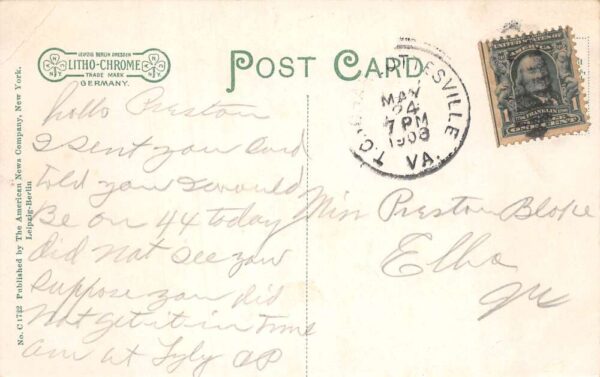 LEIPZIG BERLIN DRESDEN
LITHO-CHROME
TRADE MARK
GERMANY.
POST CARD
UNITED STATES OF AMERICA
1 FRANKLIN 1
ONE CENT
VILLE
MAY
24
7 PM
1908
VA.
No. C 1722 Published by The American News Company, New York.
Leipzig-Berlin
Hello Preston
I sent you Card
told you I would
Be on 44 today
did not see you
suppose you did
not get it in time
am at
Miss Preston
Elba